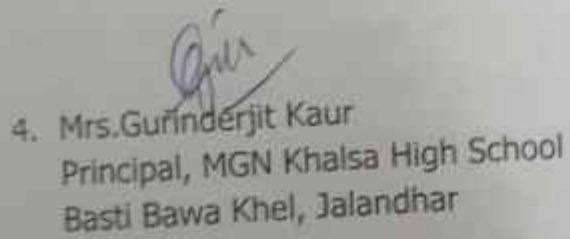 4. Mrs.Gurinderjit Kaur
Principal, MGN Khalsa High School
Basti Bawa Khel, Jalandhar